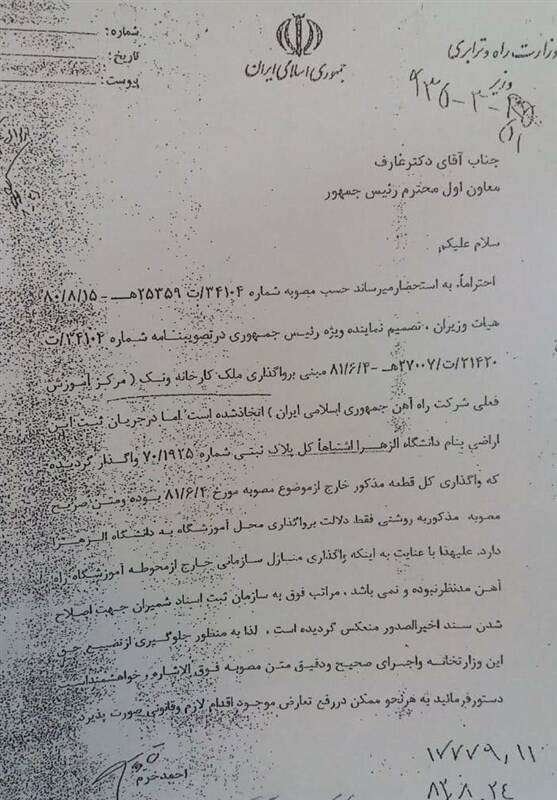 وزارت راه و ترابری
وزیر
جمهوری اسلامی ایران
شماره :
تاریخ :
پیوست :
جناب آقای دکتر عارف
معاون اول محترم رئیس جمهور
سلام علیکم
احتراماً، به استحضار میرساند حسب مصوبه شماره ۳۴۱۰۴/ت ۲۵۳۵۹هـ - ۸۰/۸/۱۵
هیات وزیران ، تصمیم نماینده ویژه رئیس جمهوری در تصویبنامه شماره ۳۴۱۰۴/ت
۳۱۴۲۰/ت/۲۷۰۰۷هـ - ۸۱/۶/۴ مبنی بر واگذاری ملک کارخانه ونک ( مرکز آموزش
فعلی شرکت راه آهن جمهوری اسلامی ایران ) اتخاذ شده است اما در جریان ثبت این
اراضی بنام دانشگاه الزهرا اشتباهاً کل پلاک ثبتی شماره ۷۰/۱۹۲۵ واگذار گردیده
که واگذاری کل قطعه مذکور خارج از موضوع مصوبه مورخ ۸۱/۶/۴ بوده ومتن صریح
مصوبه مذکور به روشنی فقط دلالت بر واگذاری محل آموزشگاه به دانشگاه الزهرا
دارد. علیهذا با عنایت به اینکه واگذاری منازل سازمانی خارج از محوطه آموزشگاه راه
آهن مدنظر نبوده و نمی باشد ، مراتب فوق به سازمان ثبت اسناد شمیران جهت اصلاح
شدن سند اخیرالصدور منعکس گردیده است . لذا به منظور جلوگیری از تضییع حق
این وزارتخانه واجرای صحیح ودقیق متن مصوبه فوق الاشاره ، خواهشمند است
دستور فرمائید به هر نحو ممکن در رفع تعارض موجود اقدام لازم وقانونی صورت پذیرد
احمد خرم
۱۷۷۷۹,۱۱
۸۳,۸,۲۴